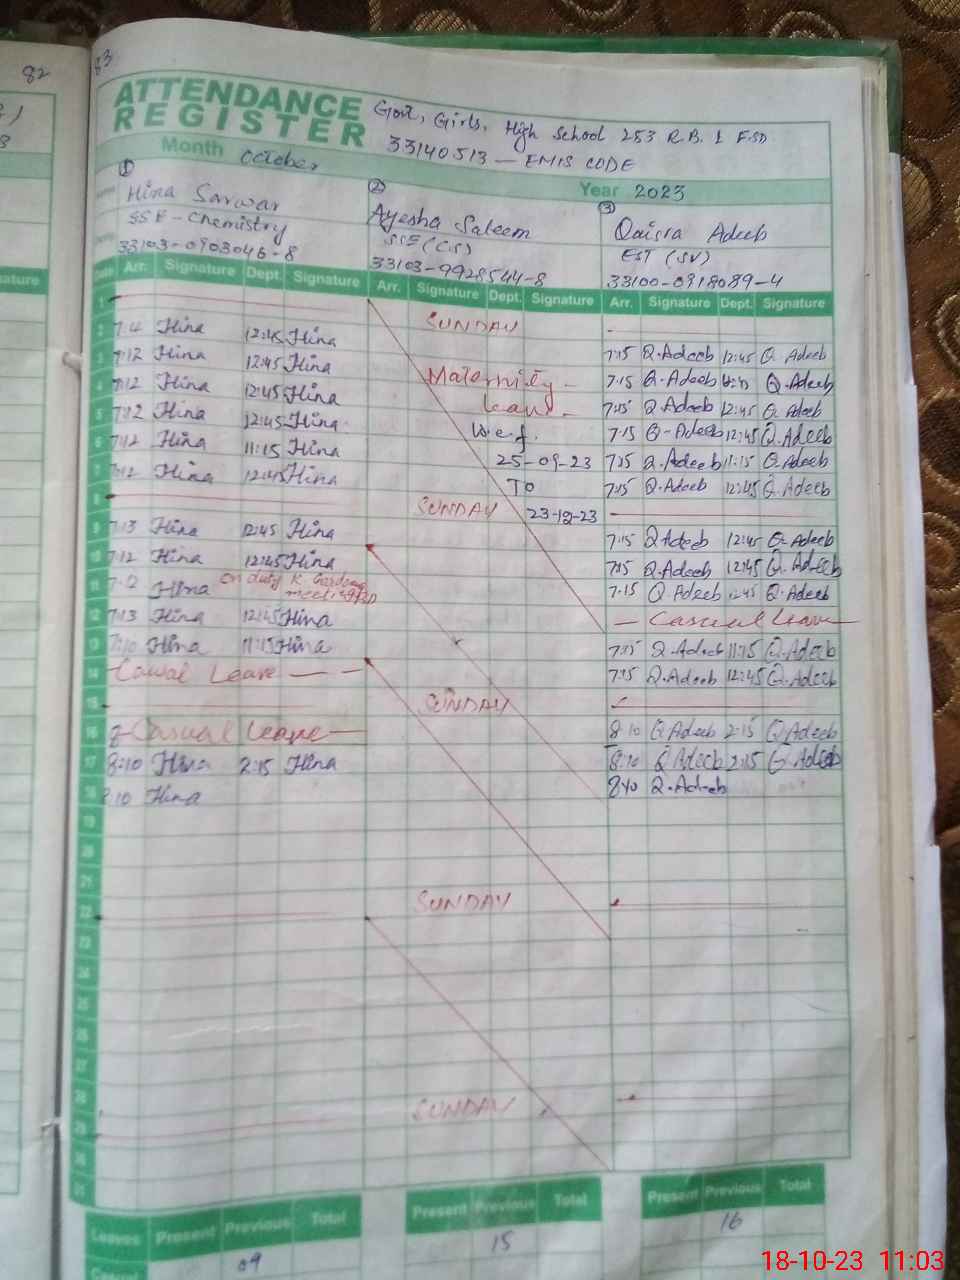 82
83
ATTENDANCE REGISTER
Govt, Girls, High School 253 R.B. I FSD
33140513 — EMIS CODE
Month October
Year 2023
1
Hina Sarwar
SSE - Chemistry
33103-0903046-8
2
Ayesha Saleem
SSE (CS)
33103-9928544-8
3
Qaisra Adeeb
EST (SV)
33100-0918089-4
Date Arr. Signature Dept. Signature Arr. Signature Dept. Signature Arr. Signature Dept. Signature
1 SUNDAY
2 Hina 12:45 Hina 7:15 Q.Adeeb 12:45 Q.Adeeb
3 7:12 Hina 12:45 Hina Maternity 7:15 Q.Adeeb Q.Adeeb
4 7:12 Hina 12:45 Hina leave 7:15 Q.Adeeb 12:45 Q.Adeeb
5 7:12 Hina 12:45 Hina w.e.f. 7:15 Q-Adeeb 12:45 Q.Adeeb
6 7:12 Hina 11:15 Hina 25-09-23 7:15 Q.Adeeb 11:15 Q.Adeeb
7 7:12 Hina 12:45 Hina To 7:15 Q.Adeeb 12:45 Q.Adeeb
8 SUNDAY 23-12-23
9 7:13 Hina 12:45 Hina 7:15 Q.Adeeb 12:45 Q.Adeeb
10 7:12 Hina 12:45 Hina 7:15 Q.Adeeb 12:45 Q.Adeeb
11 Hina on duty K. meeting 7:15 Q.Adeeb 12:45 Q.Adeeb
12 7:13 Hina 12:45 Hina — Casual Leave —
13 7:10 Hina 11:15 Hina 7:15 Q.Adeeb 11:15 Q.Adeeb
14 Casual Leave — — 7:15 Q.Adeeb 12:45 Q.Adeeb
15 SUNDAY
16 Casual Leave — 8:10 Q.Adeeb 2:15 Q.Adeeb
17 8:10 Hina 2:15 Hina 8:10 Q.Adeeb 2:15 Q.Adeeb
18 8:10 Hina 8:10 Q.Adeeb
19
20
21
22 SUNDAY
23
24
25
26
27
28
29 SUNDAY
30
31
Leaves Present Previous Total Present Previous Total Present Previous Total
Casual 09 15 16
18-10-23 11:03